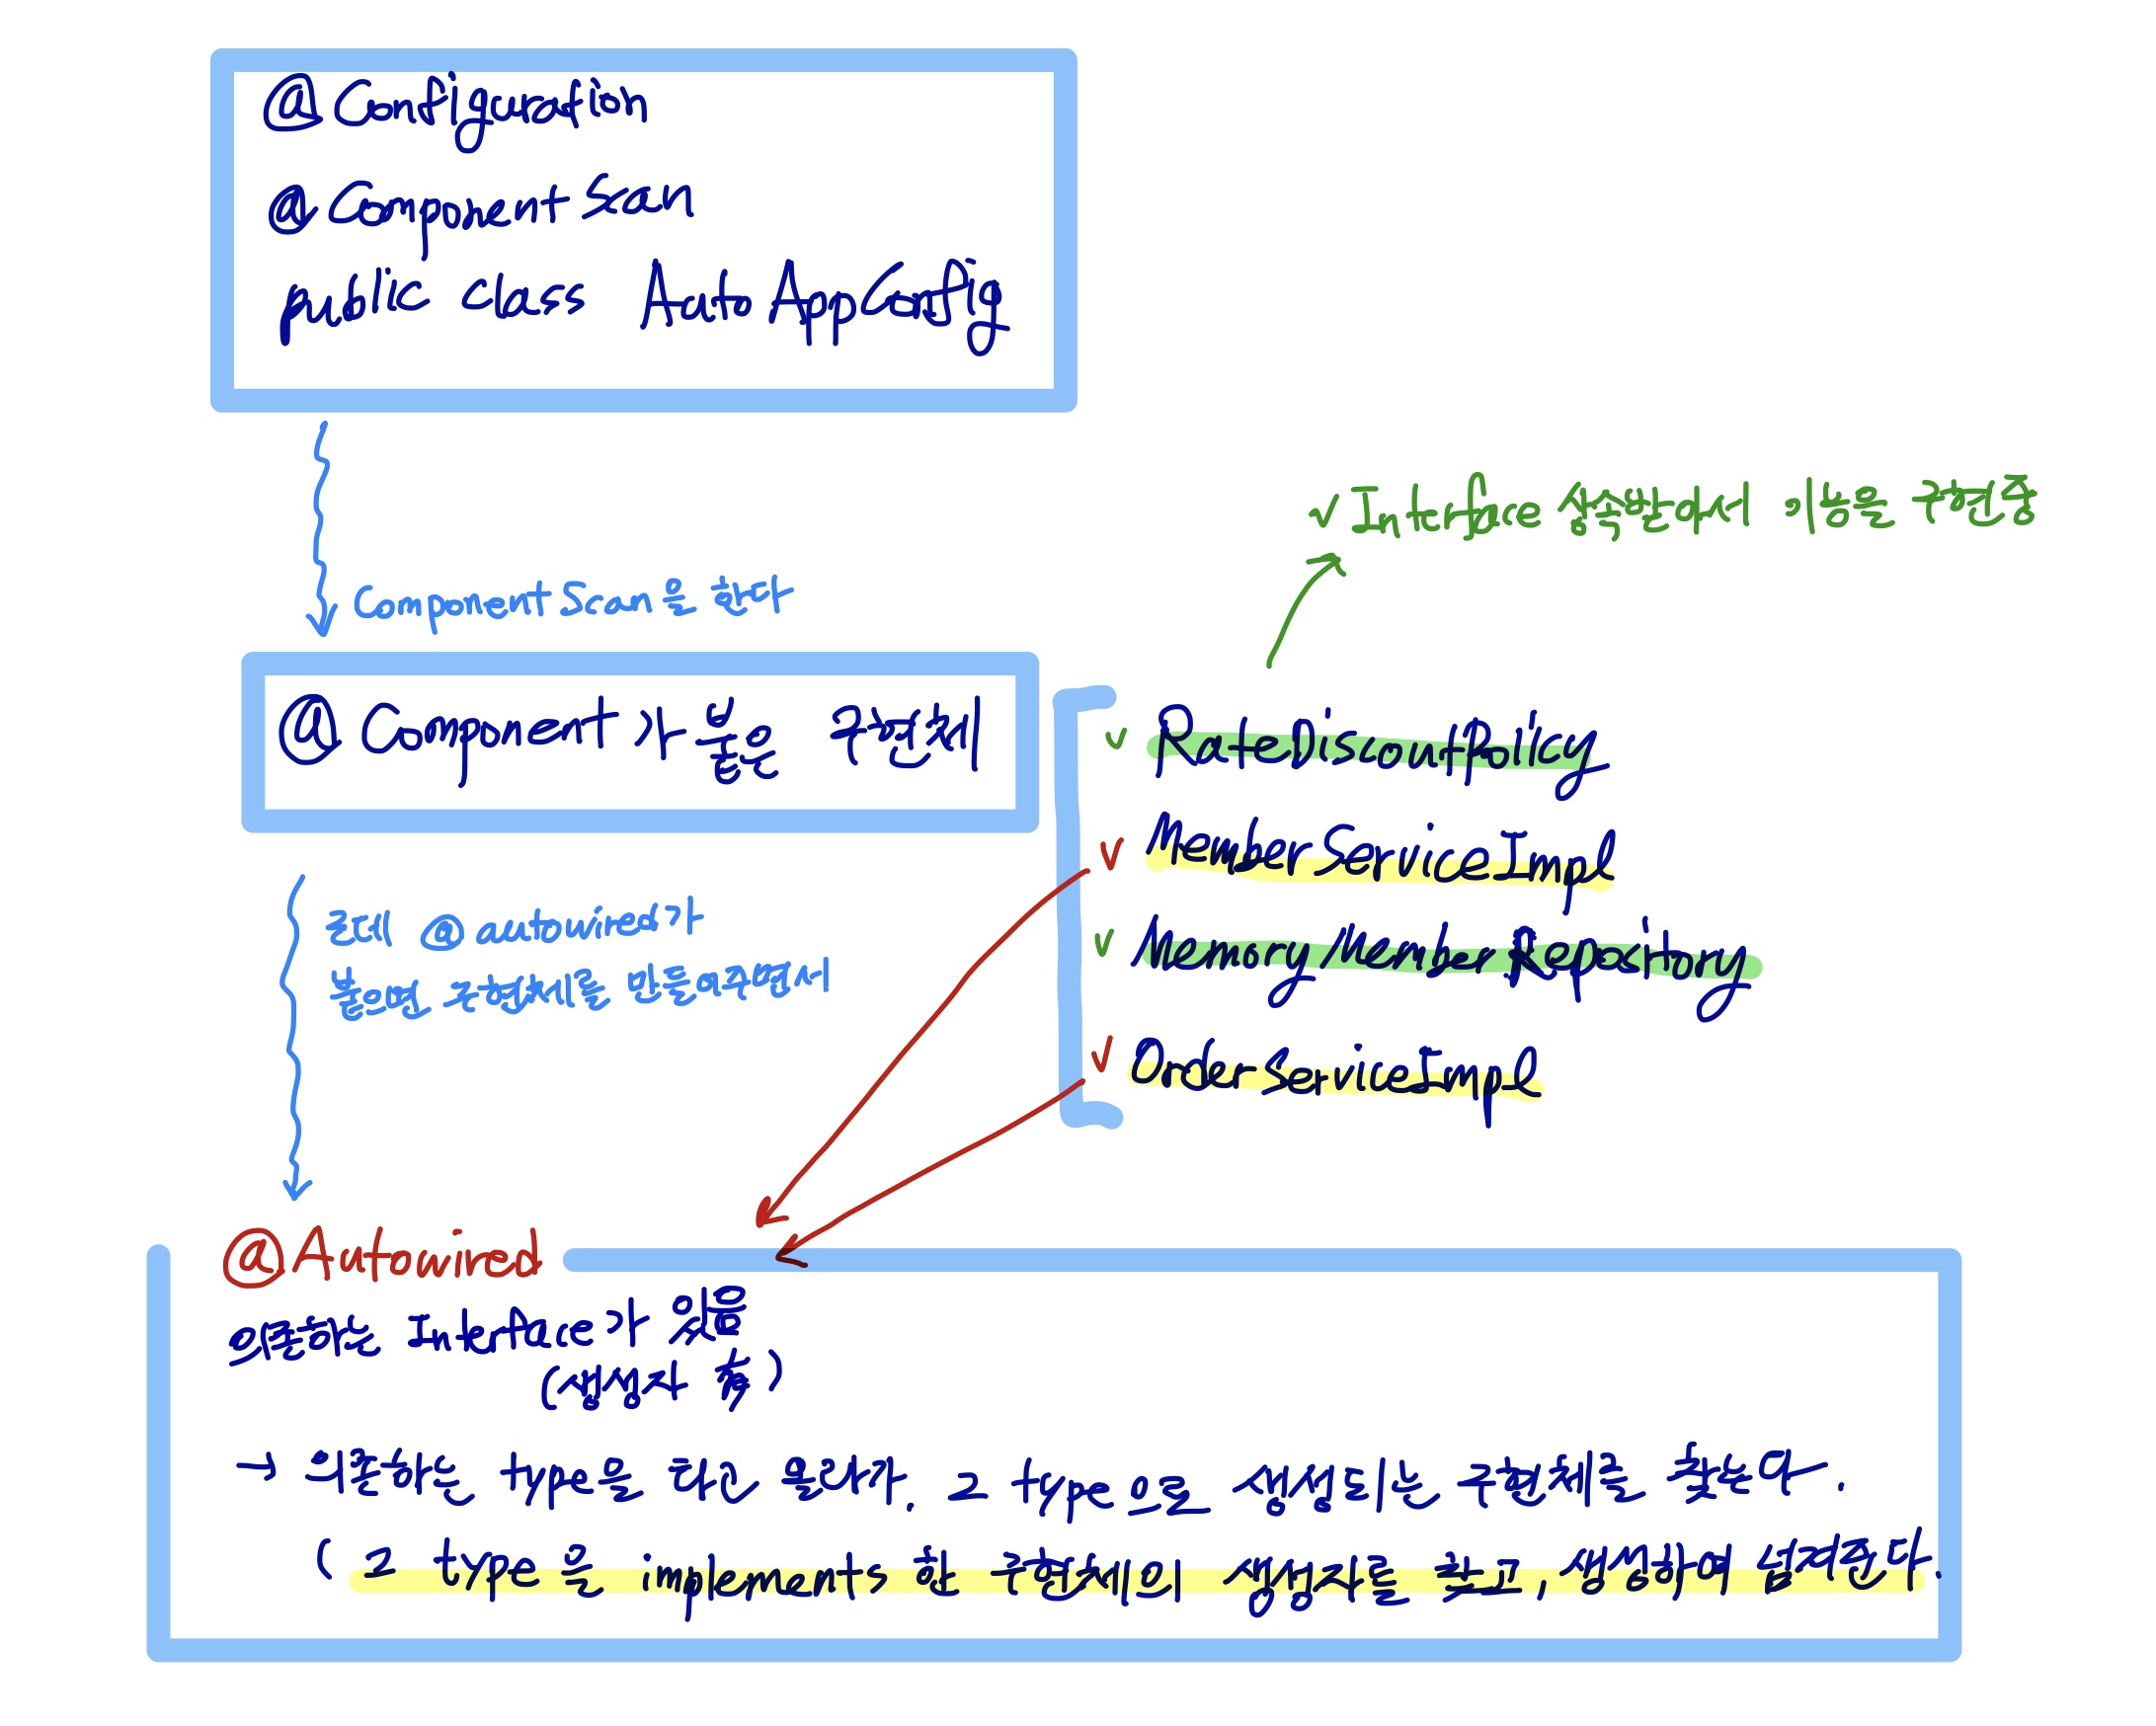 @Configuration
@ComponentScan
public class AutoAppConfig
ComponentScan을 한다
√ Interface 상속받아서 기능을 구현중
@Component가 붙은 구현체
√ RateDiscountPolicy
√ MemberServiceImpl
√ MemoryMemberRepository
√ OrderServiceImpl
근데 @autowired가
붙으면 구현체를 만들어주면서
@Autowired
의존하는 Interface가 있음
(생성자 쪽)
→ 의존하는 type을 확인 후 와서, 그 type으로 생성되는 구현체를 찾는다.
( 그 type을 implements 한 구현체의 생성자를 찾고, 생성하여 넘겨준다.